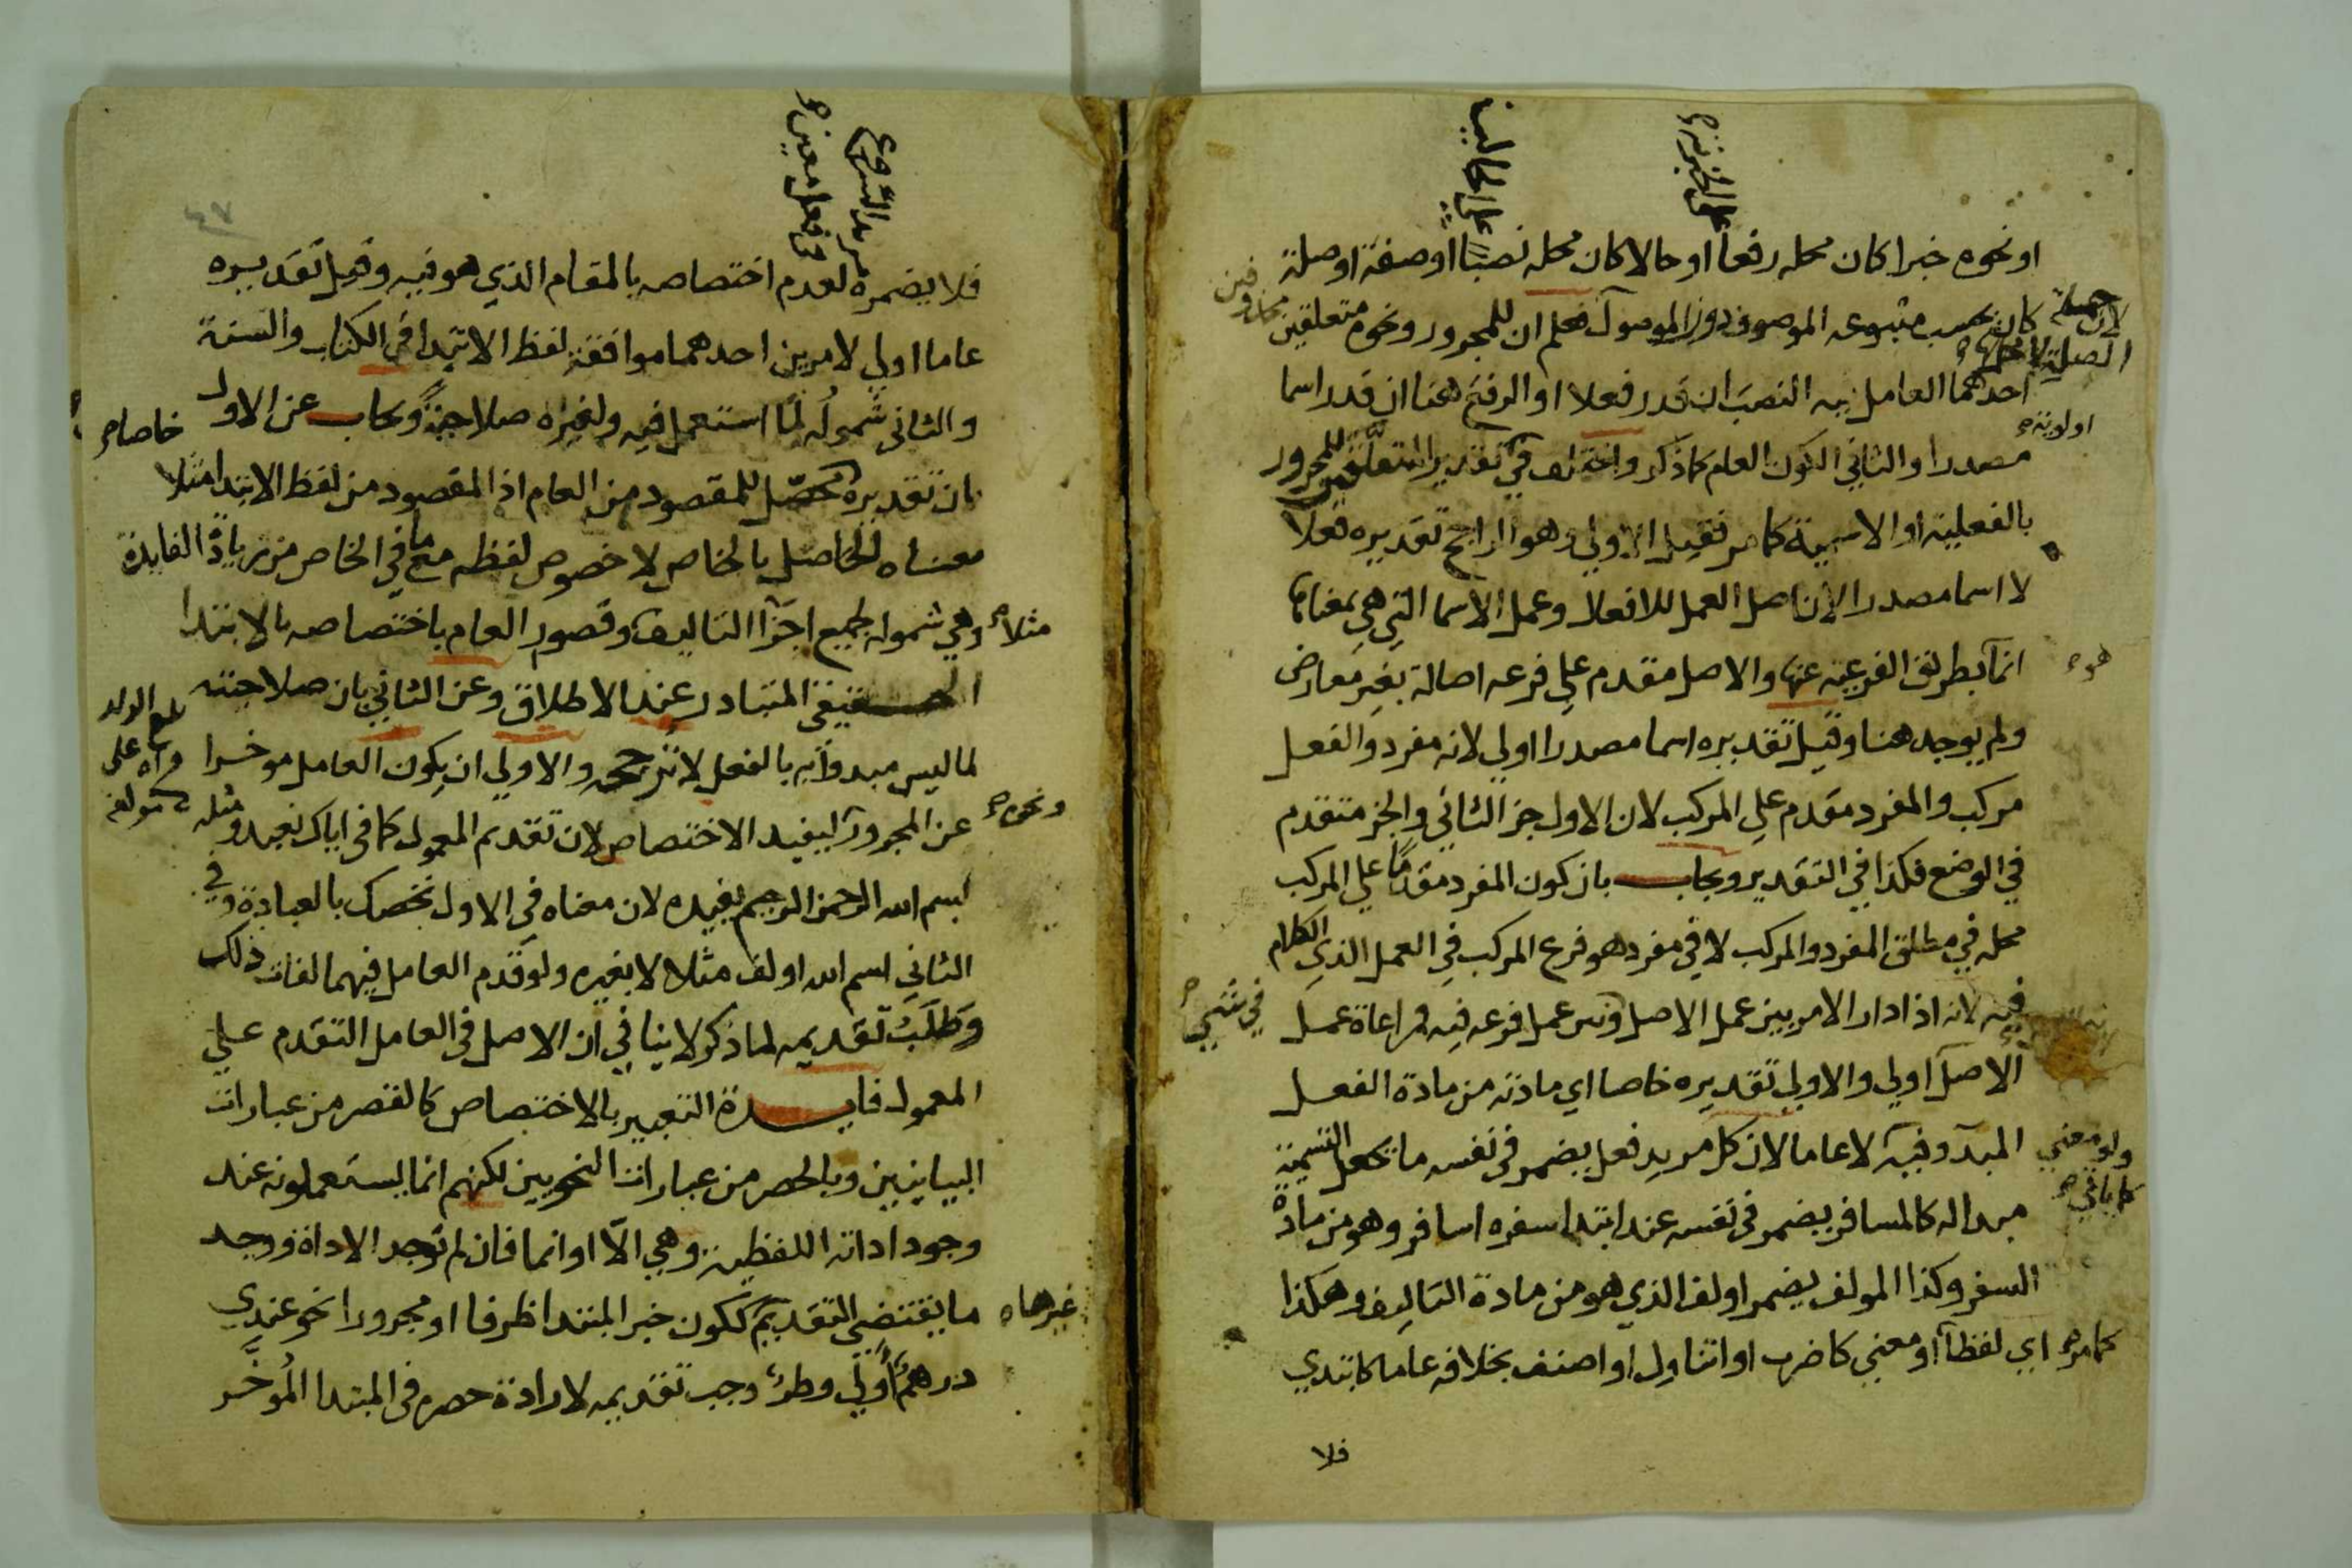 او نحوه خبرا كان محله رفعا او حالا كان محله نصبا او صفة او صلة
كان بحسب متبوعه الموصوف دون الموصول فعلم ان للمجرور ونحوه متعلقين
احدهما العامل فيه النصب ان قدر فعلا او الرفع هنا ان قدر اسما
مصدرا والثاني الكون العام كما ذكر واختلف في تقدير المتعلق للمجرور
بالفعلية او الاسمية كما مر فقيل الاولي وهو الراجح تقديره فعلا
لا اسما مصدرا لان اصل العمل للافعال وعمل الاسما التي هي بمعناها
انما بطريق الفرعية عنها والاصل مقدم علي فرعه اصالة بغير معارض
ولم يوجد هنا وقيل تقديره اسما مصدرا اولي لانه مفرد والفعل
مركب والمفرد مقدم علي المركب لان الاول جز الثاني والجز متقدم
في الوضع فكذا في التقدير ويجاب بان كون المفرد مقدما علي المركب
محله في مطلق المفرد والمركب لا في مفرد هو فرع المركب في العمل الذي الكلام
فيه لانه اذا دار الامر بين عمل الاصل وبين عمل فرعه فيه فمراعاة عمل
الاصل اولي والاولي تقديره خاصا اي مادته من مادة الفعل
المبدو فيه لا عاما لان كل مريد فعل يضمر في نفسه ما يجعل التسمية
مبدا له كالمسافر يضمر في نفسه عند ابتدا سفره اسافر وهو من مادة
السفر وكذا المولف يضمر اولف الذي هو من مادة التاليف وهكذا
اي لفظا او معني كاضرب او اتناول او اصنف بخلافه عاما كابتدي
فلا
علي الخبرية
علي الحالية
محذوفين
لان جملة
الصلة لا محل لها
اولوية
هو
في شي
ولو معني
كما ياتي
كما مر
فلا يضمره لعدم اختصاصه بالمقام الذي هو فيه وقيل تقديره
عاما اولي لامرين احدهما موافقة لفظ الابتدا في الكتاب والسنة
والثاني شموله لما استعمل فيه ولغيره صلاحية ويجاب عن الاول
بان تقديره محصل للمقصود من العام اذ المقصود من لفظ الابتدا مثلا
معناه الحاصل بالخاص لا خصوص لفظه مع ما في الخاص من زيادة الفايدة
وهي شموله لجميع اجزا التاليف وقصور العام باختصاصه بالابتدا
الحقيقي المتبادر عند الاطلاق وعن الثاني بان صلاحيته
لما ليس مبدوا به بالفعل لا ترجحه والاولي ان يكون العامل موخرا
عن المجرور ليفيد الاختصاص لان تقديم المعمول كما في اياك نعبد ومثله
بسم الله الرحمن الرحيم يفيده لان معناه في الاول نخصك بالعبادة وفي
الثاني اسم الله اولف مثلا لا بغيره ولو قدم العامل فيهما لفات ذلك
وطلب تقديمه لما ذكر لا ينافي ان الاصل في العامل التقدم علي
المعمول فايدة التعبير بالاختصاص كالقصر من عبارات
البيانيين وبالحصر من عبارات النحويين لكنهم انما يستعملونه عند
وجود اداته اللفظية وهي الا او انما فان لم توجد الاداة ووجد
ما يقتضي التقديم ككون خبر المبتدا ظرفا او مجرورا نحو عندي
درهم ولي وطر وجب تقديمه لارادة حصره في المبتدا الموخر
يريد الشروع
في فعل معين
خاصا
مثلا
بلغ الولد
قراه علي
مولفه
ونحوه
غيرها